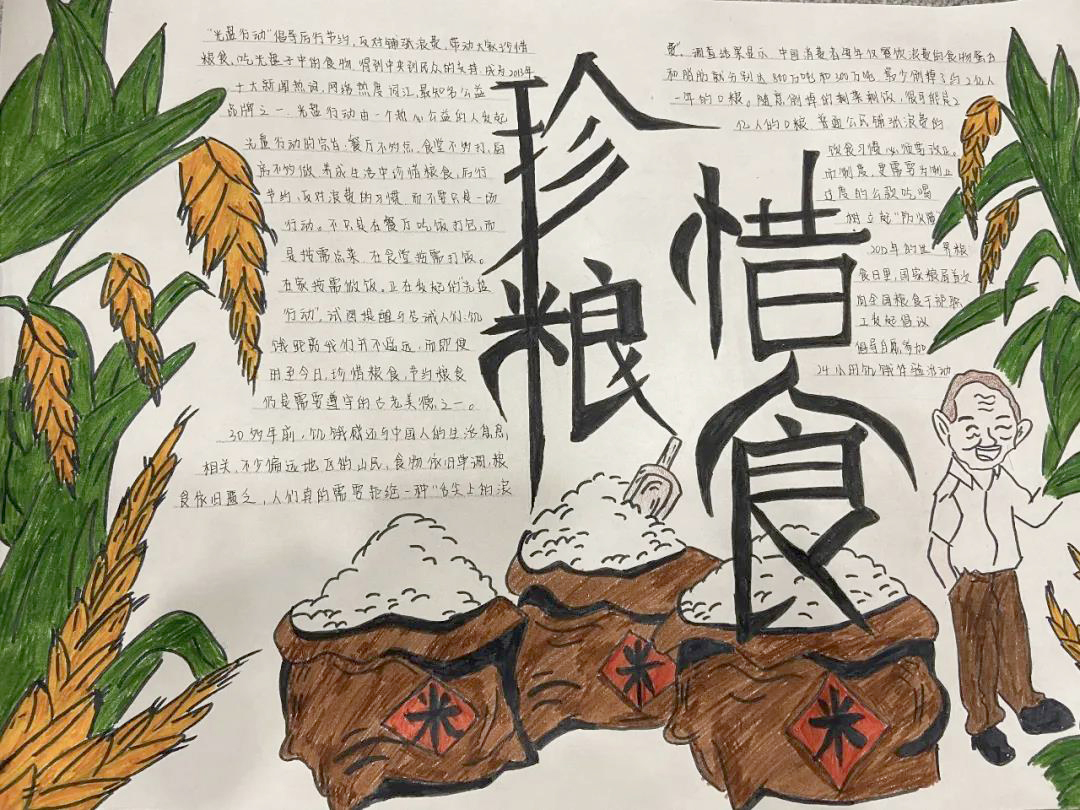 珍惜
粮食
"光盘行动"倡导厉行节约,反对铺张浪费,带动大家珍惜
粮食,吃光盘子中的食物,得到中央到民众的支持,成为2013年
十大新闻热词,网络热度词汇,最知名公益
品牌之一。光盘行动由一个热心公益的人发起
光盘行动的宗旨:餐厅不多点,食堂不多打,厨
房不多做。养成生活中珍惜粮食,厉行
节约,反对浪费的习惯,而不要只是一场
行动。不只是在餐厅吃饭打包,而
是按需点菜,在食堂按需打饭。
在家按需做饭。正在发起的"光盘
行动",试图提醒与告诫人们:饥
饿距离我们并不遥远,而即使
时至今日,珍惜粮食,节约粮食
仍是需要遵守的古老美德之一。
30多年前,饥饿感还与中国人的生活息息
相关,不少偏远地区的山民,食物依旧单调,粮
食依旧匮乏,人们真的需要拒绝一种"舌尖上的浪
费"。调查结果显示,中国消费者每年仅餐饮浪费的食物蛋白
和脂肪就分别达800万吨和300万吨,最少倒掉了约2亿人
一年的口粮。随意倒掉的剩菜剩饭,很可能是2
亿人的口粮。普通公民铺张浪费的
饮食习惯必须要改正。
而制度,更需要为制止
过度的公款吃喝
树立起"防火墙
2012年的世界粮
食日里,国家粮局首次
向全国粮食干部职
工发起倡议
倡导自愿参加
24小时饥饿体验活动
米
米
米